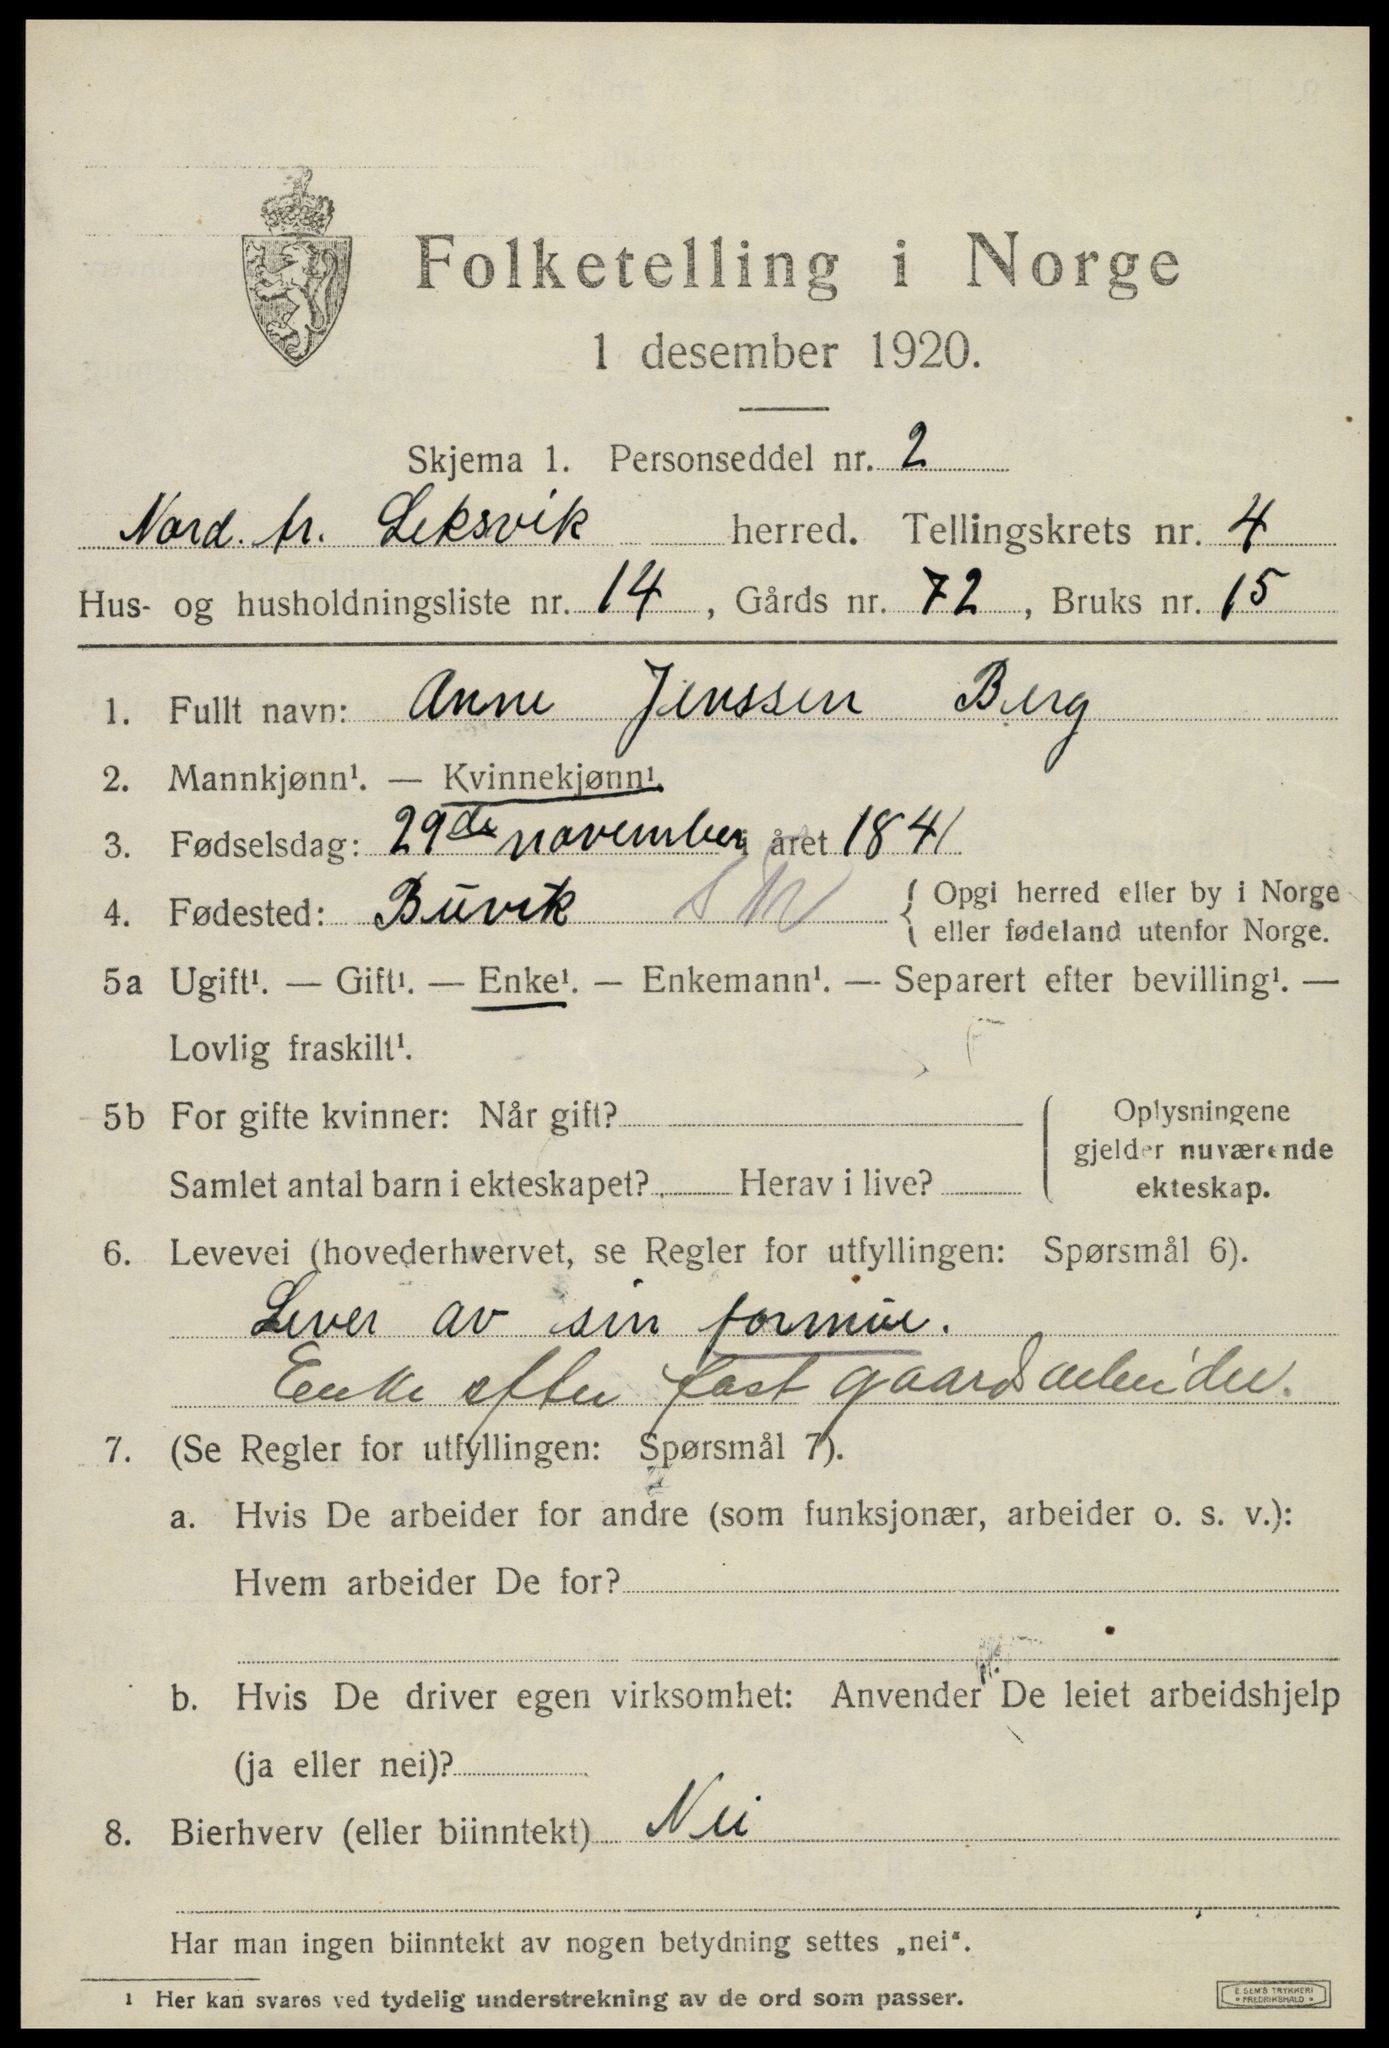 Folketelling i Norge
1 desember 1920.
Skjema 1. Personseddel nr. 2
Nord. tr. Leksvik herred. Tellingskrets nr. 4
Hus- og husholdningsliste nr. 14, Gårds nr. 72, Bruks nr. 15
1. Fullt navn: Anne Jenssen Berg
2. Mannkjønn¹. — Kvinnekjønn¹.
3. Fødselsdag: 29de november i året 1841
4. Fødested: Buvik { Opgi herred eller by i Norge
eller fødeland utenfor Norge.
5a Ugift¹. — Gift¹. — Enke¹. — Enkemann¹. — Separert efter bevilling¹. —
Lovlig fraskilt¹.
5b For gifte kvinner: Når gift?
Samlet antal barn i ekteskapet? Herav i live?
Oplysningene
gjelder nuværende
ekteskap.
6. Levevei (hovederhvervet, se Regler for utfyllingen: Spørsmål 6).
Lever av sin formue.
Enke efter fast gaardsarbeider.
7. (Se Regler for utfyllingen: Spørsmål 7).
a. Hvis De arbeider for andre (som funksjonær, arbeider o. s. v.):
Hvem arbeider De for?
b. Hvis De driver egen virksomhet: Anvender De leiet arbeidshjelp
(ja eller nei)?
8. Bierhverv (eller biinntekt) Nei
Har man ingen biinntekt av nogen betydning settes „nei“.
¹ Her kan svares ved tydelig understrekning av de ord som passer.
E. SEM'S TRYKKERI
• FREDRIKSHALD •